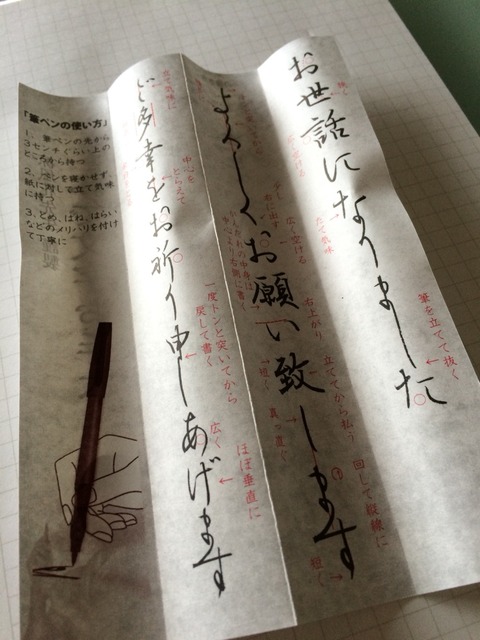 お世話になりました
筆を立てて抜く
広く空ける
立て気味
よろしくお願い致します
右に出す
だんだれの中身は
中心より右側に書く
右上がり
短く
立ててから払う
真っ直ぐ
回して縦線に
短く
ご多幸をお祈り申しあげます
立て気味に
中心を
とらえて
一度トンと突いてから
戻して書く
広く
ほぼ垂直に
「筆ペンの使い方」
1、筆ペンの先から
3センチぐらい上の
ところを持つ
2、ペンを寝かせず、
紙に対して立て気味
に持つ
3、とめ、はね、はらい
などのメリハリを付け
て丁寧に